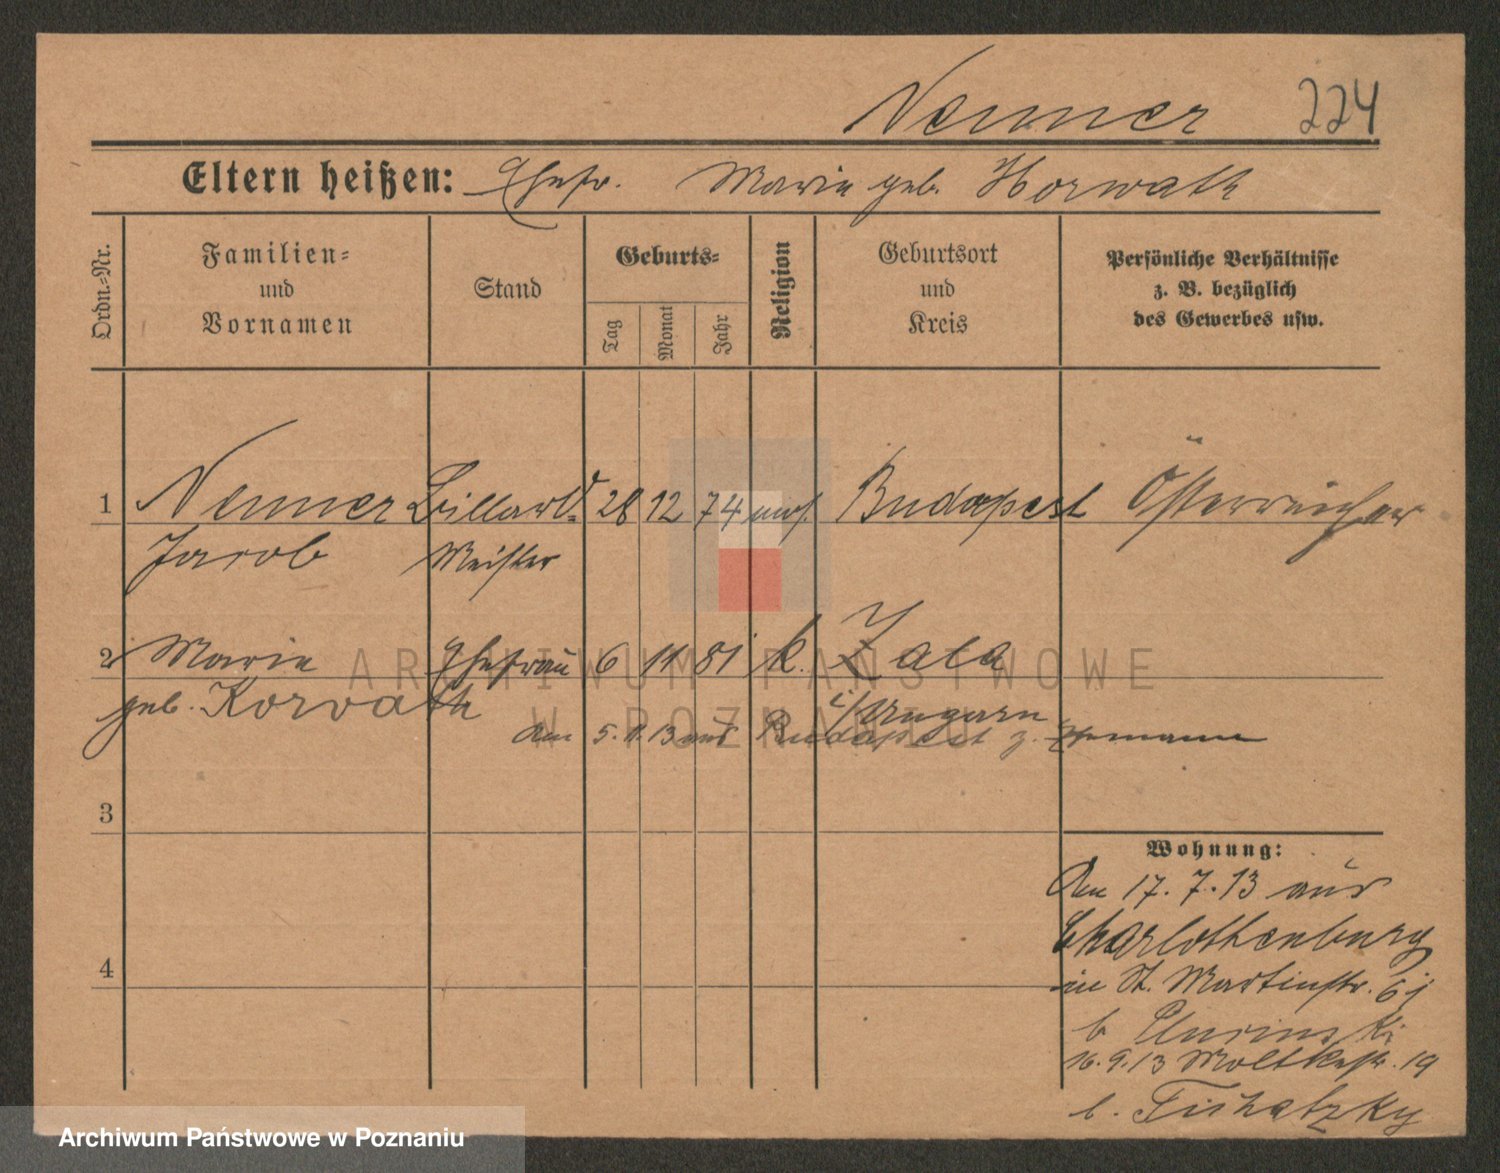 Nemner 224
Eltern heißen: Ehefr. Marie geb. Horwath
Ordn.-Nr.
Familien- und Vornamen
Stand
Geburts-
Tag
Monat
Jahr
Religion
Geburtsort und Kreis
Persönliche Verhältnisse z. B. bezüglich des Gewerbes usw.
1 Nemner Billard- 28 12 74 mos. Budapest Österreicher
Jacob Meister
2 Marie Ehefrau 6 11 81 k. Zala
geb. Korvath i/Ungarn
Am 5.11.13 aus Budapest z. Ehemann
3
Wohnung:
Am 17.7.13 aus
Charlottenburg
4
in St. Martinstr. 61
b
16.9.13 Moltkestr. 19
b.
ARCHIWUM PAŃSTWOWE
W POZNANIU
Archiwum Państwowe w Poznaniu